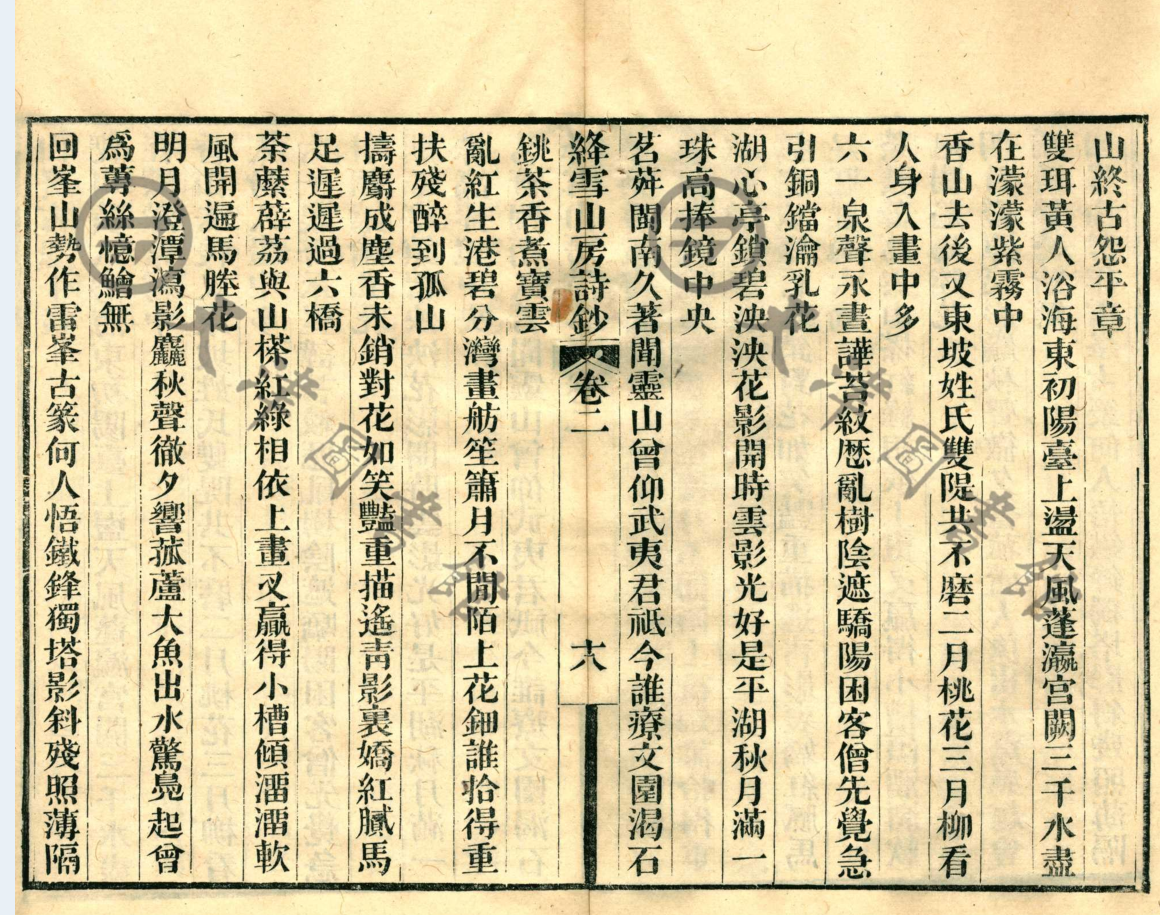 山終古怨平章
雙珥黃人浴海東初陽臺上盪天風蓬瀛宮闕三千水盡
在濛濛紫霧中
香山去後又東坡姓氏雙隄共不磨二月桃花三月柳看
人身入畫中多
六一泉聲永晝譁苔紋歴亂樹陰遮驕陽困客僧先覺急
引銅鐺瀹乳花
湖心亭鎖碧泱泱花影開時雲影光好是平湖秋月滿一
珠高捧鏡中央
茗荈閩南久著聞靈山曾仰武夷君祇今誰療文園渴石
絳雪山房詩鈔 卷二 十八
銚茶香煮寶雲
亂紅生港碧分灣畫舫笙簫月不閒陌上花鈿誰拾得重
扶殘醉到孤山
擣麝成塵香未銷對花如笑豔重描遙靑影裏嬌紅膩馬
足遲遲過六橋
茶蘪薜荔與山樣紅綠相依上畫叉贏得小槽傾溜溜軟
風開遍馬塍花
明月澄潭瀉影麤秋聲徹夕響菰蘆大魚出水驚鳧起曾
爲蓴絲憶鱠無
回峯山勢作雷峯古篆何人悟鐵鋒獨塔影斜殘照薄隔